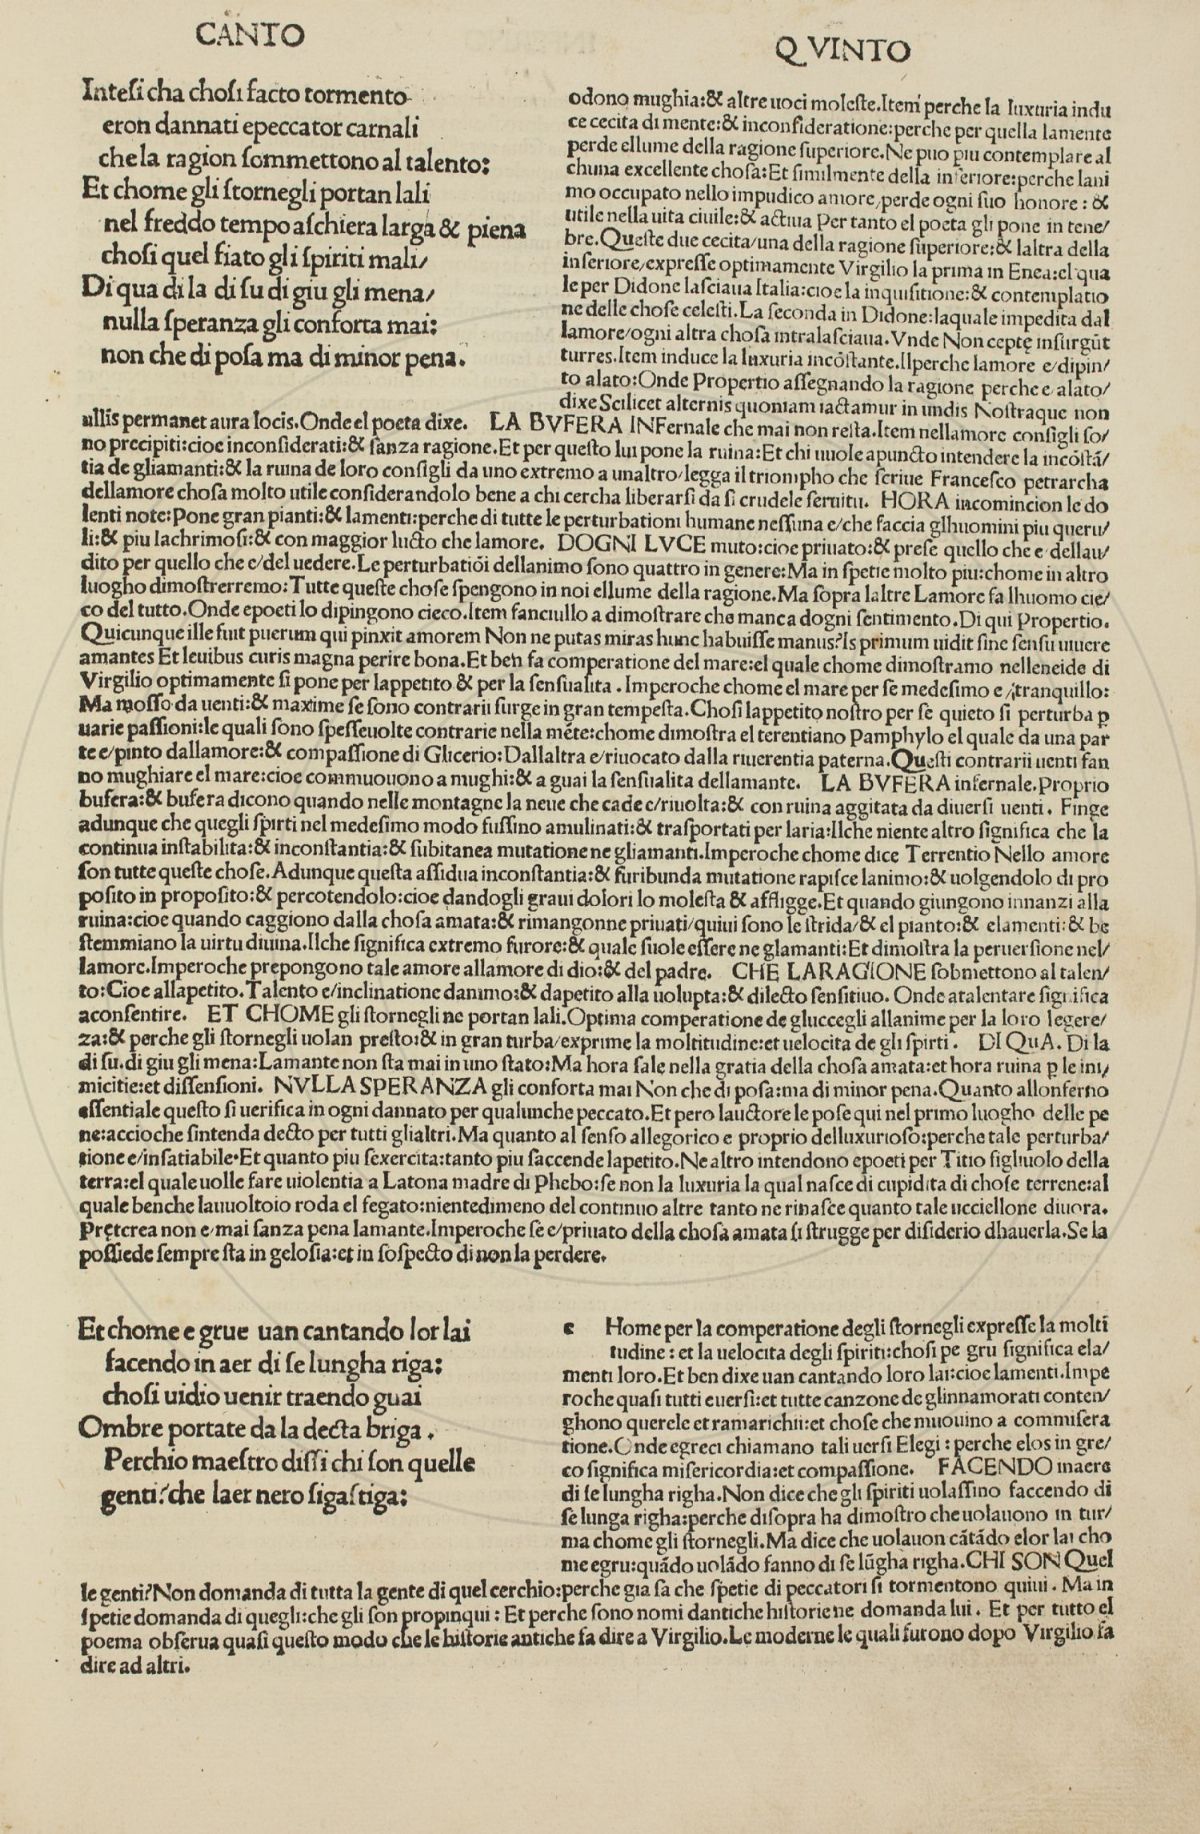 CANTO
QVINTO
Inteſi cha choſi facto tormento
eron dannati epeccator carnali
che la ragion ſommettono al talento:
Et chome gli ſtornegli portan lali
nel freddo tempo aſchiera larga & piena
choſi quel fiato gli ſpiriti mali/
Di qua di la di ſu di giu gli mena/
nulla ſperanza gli conforta mai:
non che di poſa ma di minor pena.
odono mughia:& altre uoci moleſte.Item perche la luxuria indu
ce cecita di mente:& inconſideratione:perche per quella lamente
perde ellume della ragione ſuperiore.Ne puo piu contemplare al
chuna excellente choſa:Et ſimilmente della inferiore:perche lani
mo occupato nello impudico amore/perde ogni ſuo honore: &
utile nella uita ciuile:& actiua Per tanto el poeta gli pone in tene/
bre.Queſte due cecita/una della ragione ſuperiore:& laltra della
inferiore/expreſſe optimamente Virgilio la prima in Enea:el qua
le per Didone laſciaua Italia:cioe la inquiſitione:& contemplatio
ne delle choſe celeſti.La ſeconda in Didone:laquale impedita dal
lamore/ogni altra choſa intralaſciaua.Vnde Non ceptę inſurgūt
turres.Item induce la luxuria incōſtante.Ilperche lamore e/dipin/
to alato:Onde Propertio aſſegnando la ragione perche e alato/
dixe Scilicet alternis quoniam iactamur in undis Noſtraque non
ullis permanet aura locis.Onde el poeta dixe. LA BVFERA INFernale che mai non reſta.Item nellamore conſigli ſo/
no precipiti:cioe inconſiderati:& ſanza ragione.Et per queſto lui pone la ruina:Et chi uuole apuncto intendere la incōſtā/
tia de gliamanti:& la ruina de loro conſigli da uno extremo a unaltro/legga il triompho che ſcriue Franceſco petrarcha
dellamore choſa molto utile conſiderandolo bene a chi cercha liberarſi da ſi crudele ſeruitu. HORA incomincion le do
lenti note:Pone gran pianti:& lamenti:perche di tutte le perturbationi humane neſſuna e/che faccia glhuomini piu queru/
li:& piu lachrimoſi:& con maggior lucto che lamore. DOGNI LVCE muto:cioe priuato:& preſe quello che e dellau/
dito per quello che e/del uedere.Le perturbatiōi dellanimo ſono quattro in genere:Ma in ſpetie molto piu:chome in altro
luogho dimoſtrerremo:Tutte queſte choſe ſpengono in noi ellume della ragione.Ma ſopra laltre Lamore fa lhuomo cie/
co del tutto.Onde epoeti lo dipingono cieco.Item fanciullo a dimoſtrare che manca dogni ſentimento.Di qui Propertio.
Quicunque ille fuit puerum qui pinxit amorem Non ne putas miras hunc habuiſſe manus?Is primum uidit ſine ſenſu uiuere
amantes Et leuibus curis magna perire bona.Et ben fa comperatione del mare:el quale chome dimoſtramo nelleneide di
Virgilio optimamente ſi pone per lappetito & per la ſenſualita . Imperoche chome el mare per ſe medeſimo e/tranquillo:
Ma moſſo da uenti:& maxime ſe ſono contrarii ſurge in gran tempeſta.Choſi lappetito noſtro per ſe quieto ſi perturba p
uarie paſſioni:le quali ſono ſpeſſeuolte contrarie nella mēte:chome dimoſtra el terentiano Pamphylo el quale da una par
te e/pinto dallamore:& compaſſione di Glicerio:Dallaltra e/riuocato dalla riuerentia paterna.Queſti contrarii uenti fan
no mughiare el mare:cioe commuouono a mughi:& a guai la ſenſualita dellamante. LA BVFERA infernale.Proprio
bufera:& bufera dicono quando nelle montagne la neue che cade e/riuolta:& con ruina aggitata da diuerſi uenti. Finge
adunque che quegli ſpirti nel medeſimo modo fuſſino amulinati:& traſportati per laria:Ilche niente altro ſignifica che la
continua inſtabilita:& inconſtantia:& ſubitanea mutatione ne gliamanti.Imperoche chome dice Terrentio Nello amore
ſon tutte queſte choſe.Adunque queſta aſſidua inconſtantia:& furibunda mutatione rapiſce lanimo:& uolgendolo di pro
poſito in propoſito:& percotendolo:cioe dandogli graui dolori lo moleſta & affligge.Et quando giungono innanzi alla
ruina:cioe quando caggiono dalla choſa amata:& rimangonne priuati/quiui ſono le ſtrida/& el pianto:& elamenti:& be
ſtemmiano la uirtu diuina.Ilche ſignifica extremo furore:& quale ſuole eſſere ne glamanti:Et dimoſtra la peruerſione nel/
lamore.Imperoche prepongono tale amore allamore di dio:& del padre. CHE LARAGIONE ſobmettono al talen/
to:Cioe allapetito.Talento e/inclinatione danimo:& dapetito alla uolupta:& dilecto ſenſitiuo. Onde atalentare ſignifica
aconſentire. ET CHOME gli ſtornegli ne portan lali.Optima comperatione de gluccegli allanime per la loro legere/
za:& perche gli ſtornegli uolan preſto:& in gran turba/exprime la moltitudine:et uelocita de gli ſpirti. DI QuA. Di la
di ſu.di giu gli mena:Lamante non ſta mai in uno ſtato:Ma hora ſale nella gratia della choſa amata:et hora ruina p le ini/
micitie:et diſſenſioni. NVLLA SPERANZA gli conforta mai Non che di poſa:ma di minor pena.Quanto allonferno
eſſentiale queſto ſi uerifica in ogni dannato per qualunche peccato.Et pero lauctore le poſe qui nel primo luogho delle pe
ne:accioche ſintenda decto per tutti glialtri.Ma quanto al ſenſo allegorico e proprio delluxurioſo:perche tale perturba/
tione e/inſatiabile.Et quanto piu ſexercita:tanto piu ſaccende lapetito.Ne altro intendono epoeti per Titio figliuolo della
terra:el quale uolle fare uiolentia a Latona madre di Phebo:ſe non la luxuria la qual naſce di cupidita di choſe terrene:al
quale benche lauuoltoio roda el fegato:nientedimeno del continuo altre tanto ne rinaſce quanto tale ucciellone diuora.
Pręterea non e/mai ſanza pena lamante.Imperoche ſe e/priuato della choſa amata ſi ſtrugge per diſiderio dhauerla.Se la
poſſiede ſempre ſta in geloſia:et in ſoſpecto di non la perdere.
Et chome e grue uan cantando lor lai
facendo in aer di ſe lungha riga:
choſi uidio uenir traendo guai
Ombre portate da la decta briga.
Perchio maeſtro diſſi chi ſon quelle
genti?che laer nero ſigaſtiga:
c Home per la comperatione degli ſtornegli expreſſe la molti
tudine: et la uelocita degli ſpiriti:choſi pe gru ſignifica ela/
menti loro.Et ben dixe uan cantando loro lai:cioe lamenti.Impe
roche quaſi tutti euerſi:et tutte canzone de glinnamorati conten/
ghono querele et ramarichii:et choſe che muouino a commiſera
tione.Onde egreci chiamano tali uerſi Elegi: perche elos in gre/
co ſignifica miſericordia:et compaſſione. FACENDO inaere
di ſe lungha righa.Non dice che gli ſpiriti uolaſſino faccendo di
ſe lunga righa:perche diſopra ha dimoſtro che uolauono in tur/
ma chome gli ſtornegli.Ma dice che uolauon cātādo elor lai cho
me egru:quādo uolādo fanno di ſe lūgha righa.CHI SON Quel
le genti?Non domanda di tutta la gente di quel cerchio:perche gia ſa che ſpetie di peccatori ſi tormentono quiui. Ma in
ſpetie domanda di quegli:che gli ſon propinqui: Et perche ſono nomi dantiche hiſtorie ne domanda lui. Et per tutto el
poema obſerua quaſi queſto modo che le hiſtorie antiche fa dire a Virgilio.Le moderne le quali furono dopo Virgilio fa
dire ad altri.